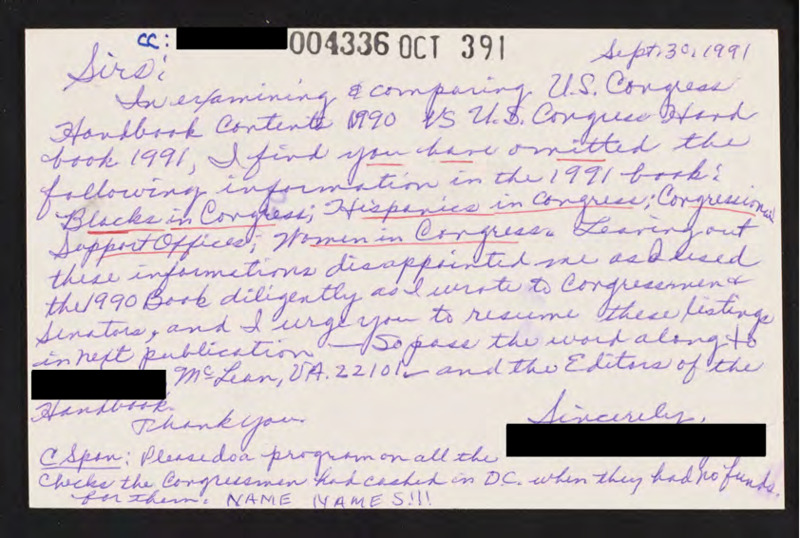 CC:
004336 OCT 391
Sept. 30, 1991
Sirs:
In examining & comparing U.S. Congress
Handbook Contents 1990 VS U.S. Congress Hand
book 1991, I find you have omitted the
following information in the 1991 book:
Blacks in Congress; Hispanics in Congress; Congressional
Support Offices; Women in Congress. Leaving out
these informations disappointed me as I used
the 1990 Book diligently as I wrote to Congressmen &
Senators, and I urge you to resume these listings
in next publication — So pass the word along to
McLean, VA. 22101 — and the Editors of the
Handbook.
Thank you.
Sincerely,
C Span: Please do a program on all the
checks the Congressmen had cashed in DC. when they had no funds
for them. NAME NAMES!!!